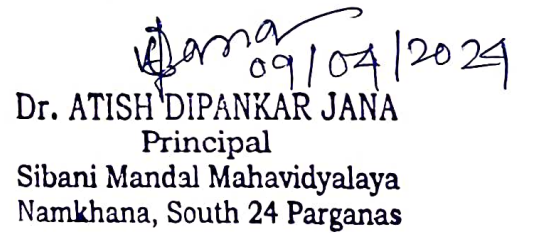 Jana
09/04/2024
Dr. ATISH DIPANKAR JANA
Principal
Sibani Mandal Mahavidyalaya
Namkhana, South 24 Parganas